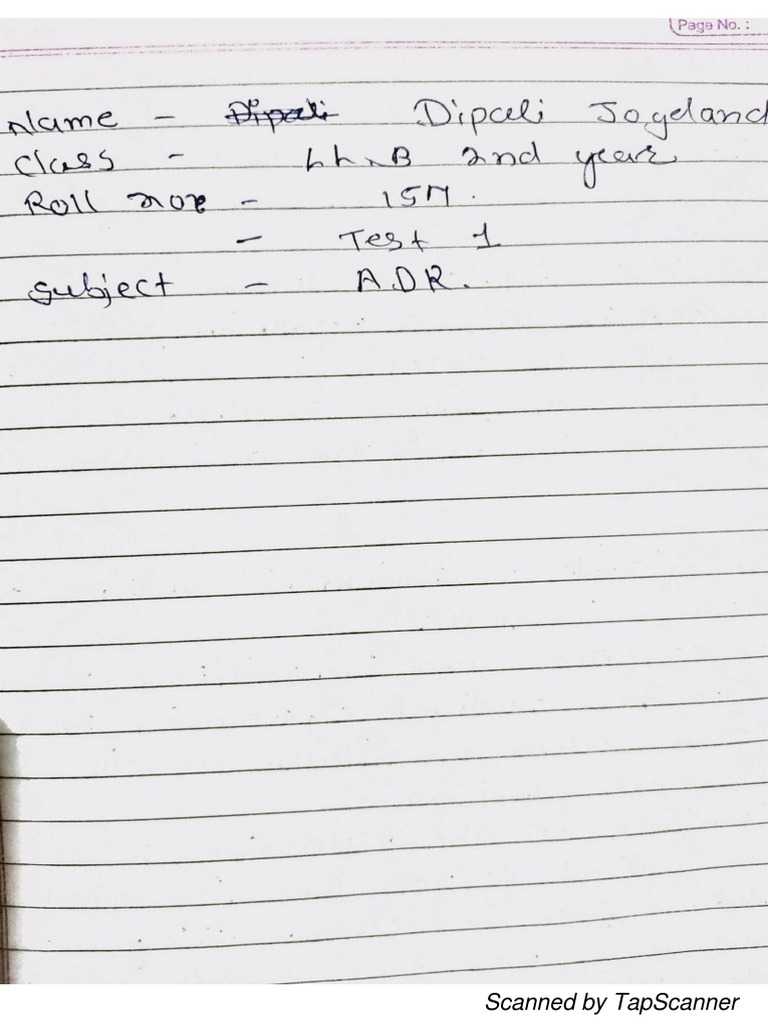 Page No. :
Name - Dipali Dipali Jogdand
class - LL.B 2nd year
Roll no - 157.
- Test 1
subject - A.D.R.
Scanned by TapScanner